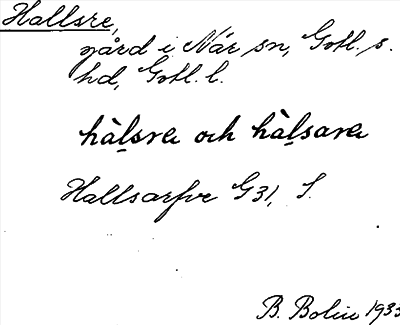 Hallsre,
gård i När sn, Gotl. s.
hd, Gotl. l.
hàl̥srɐ och hàl̥sarɐ
Hallsarfve G31, S.
B. Bolin 1933